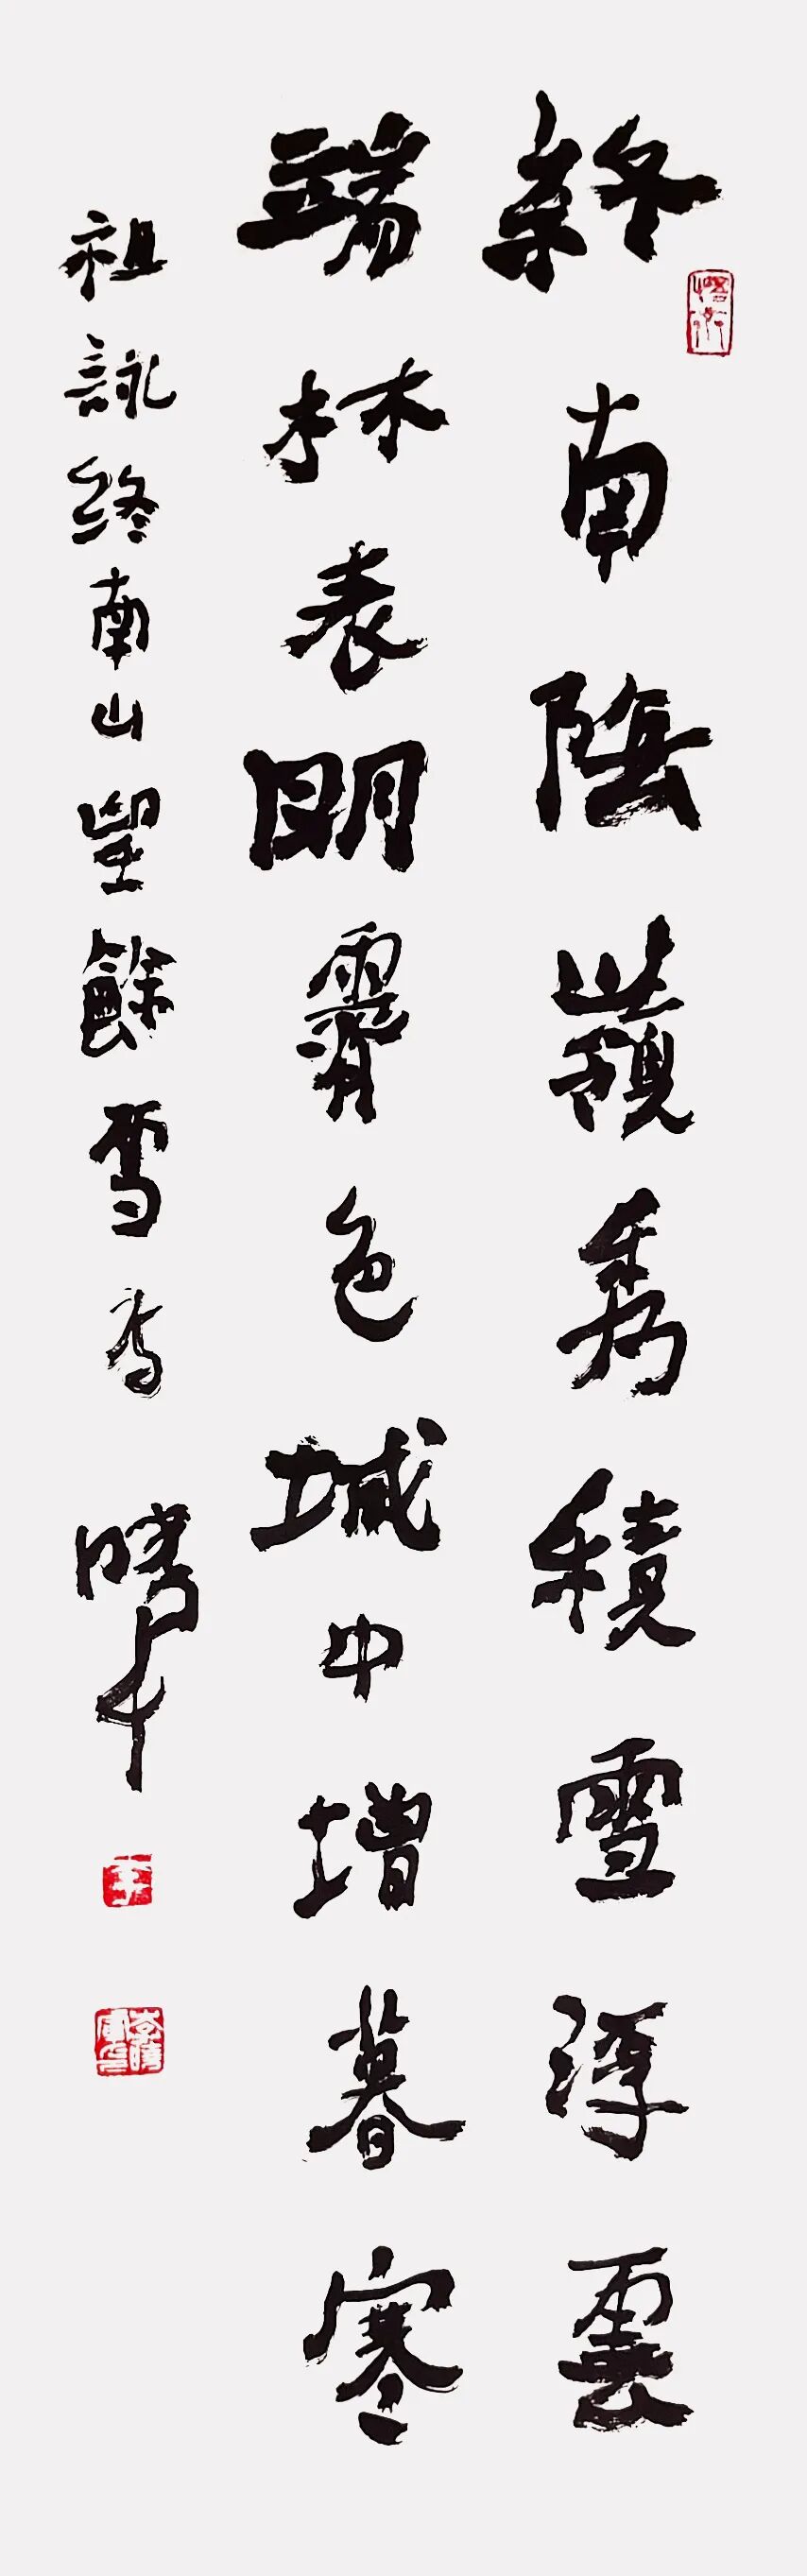 終南陰嶺秀積雪浮雲
端林表明霽色城中增暮寒
祖詠終南山望餘雪句